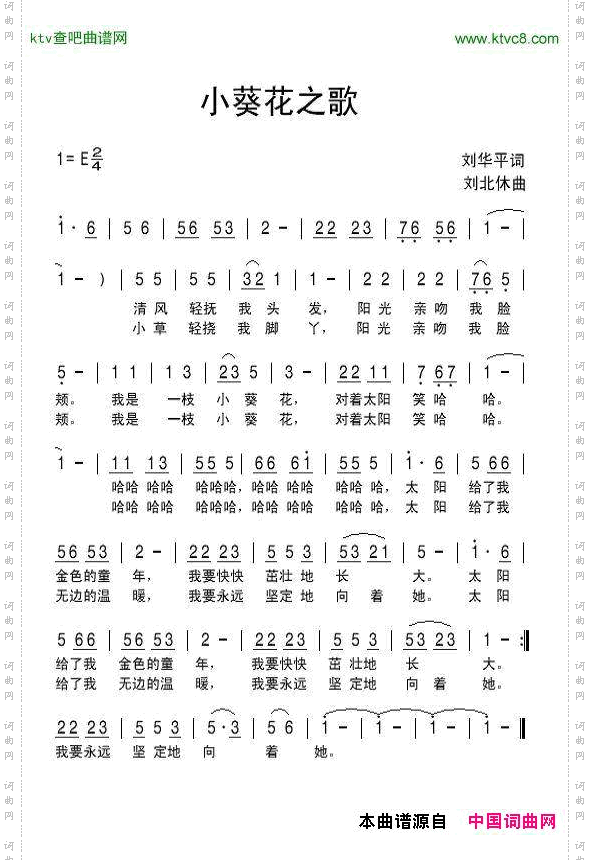 ktv查吧曲谱网 www.ktvc8.com
小葵花之歌
1=E 2/4 刘华平词
刘北休曲
1· 6 | 5 6 | 56 53 | 2 - | 22 23 | 76 56 | 1 - |
1 - ) | 5 5 | 5 5 | 32 1 | 1 - | 2 2 | 2 2 | 76 5 |
清风 轻抚 我头 发， 阳光 亲吻 我脸
小草 轻挠 我脚 丫， 阳光 亲吻 我脸
5 - | 1 1 | 1 3 | 23 5 | 3 - | 22 11 | 7 67 | 1 - |
颊。 我是 一枝 小葵 花， 对着太阳 笑哈 哈。
颊。 我是 一枝 小葵 花， 对着太阳 笑哈 哈。
1 - | 11 13 | 55 5 | 66 61 | 55 5 | 1· 6 | 5 66 |
哈哈 哈哈 哈哈哈，哈哈 哈哈 哈哈 哈， 太 阳 给了我
哈哈 哈哈 哈哈哈，哈哈 哈哈 哈哈 哈， 太 阳 给了我
56 53 | 2 - | 22 23 | 5 5 3 | 53 21 | 5 - | 1· 6 |
金色的童 年， 我要快快 茁壮 地 长 大。 太阳
无边的温 暖， 我要永远 坚定 地 向 着 她。 太阳
5 66 | 56 53 | 2 - | 22 23 | 5 5 3 | 53 23 | 1 - :||
给了我 金色的童 年， 我要快快 茁 壮地 长 大。
给了我 无边的温 暖， 我要永远 坚 定地 向 着 她。
22 23 | 5 5 3 | 5·3 | 5 6 | 1 - | 1 - | 1 - | 1 - ||
我要永远 坚 定地 向 着 她。
本曲谱源自 中国词曲网